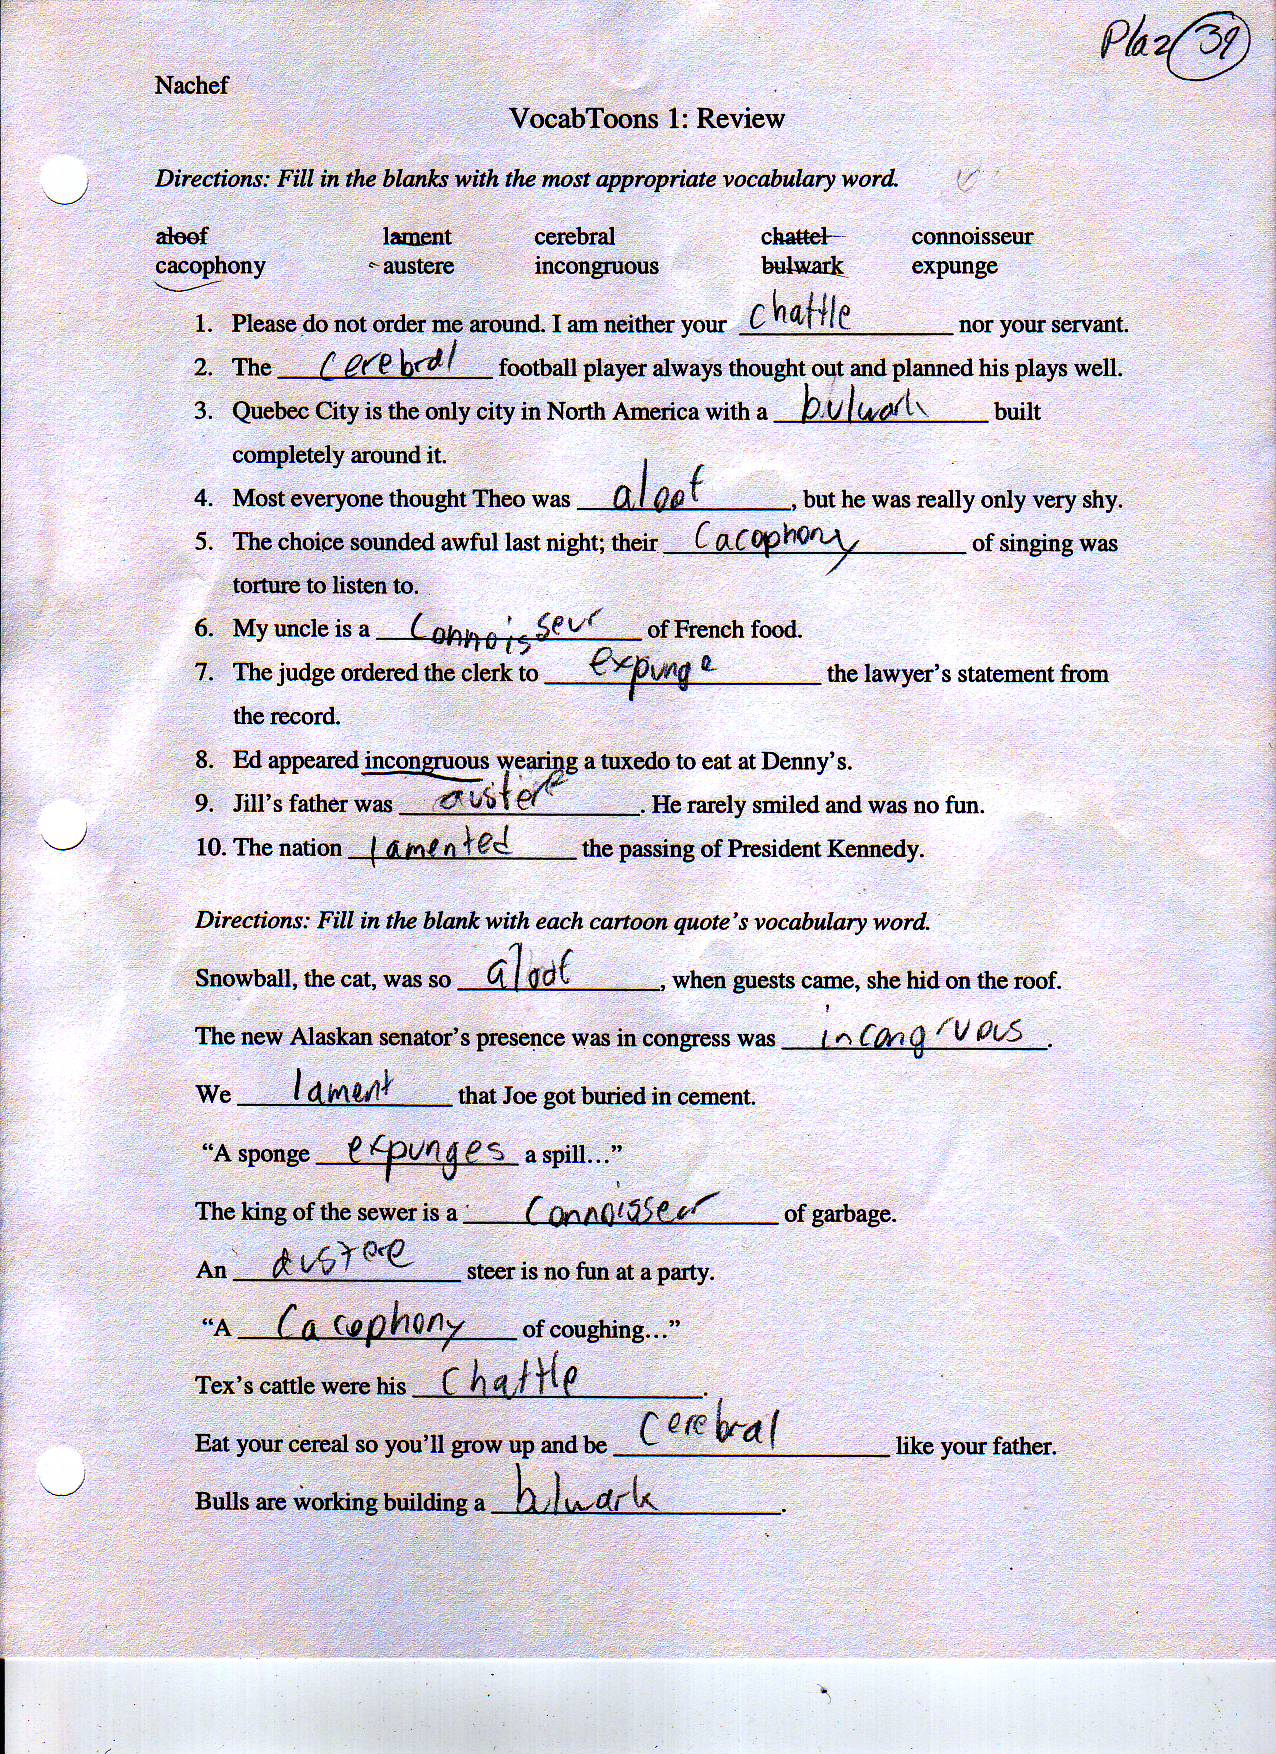 Pla2 39
Nachef
VocabToons 1: Review
Directions: Fill in the blanks with the most appropriate vocabulary word.
aloof lament cerebral chattel connoisseur
cacophony austere incongruous bulwark expunge
1. Please do not order me around. I am neither your chattle nor your servant.
2. The cerebral football player always thought out and planned his plays well.
3. Quebec City is the only city in North America with a bulwark built
completely around it.
4. Most everyone thought Theo was aloof, but he was really only very shy.
5. The choice sounded awful last night; their Cacophony of singing was
torture to listen to.
6. My uncle is a Connoisseur of French food.
7. The judge ordered the clerk to expunge the lawyer's statement from
the record.
8. Ed appeared incongruous wearing a tuxedo to eat at Denny's.
9. Jill's father was austere. He rarely smiled and was no fun.
10. The nation lamented the passing of President Kennedy.
Directions: Fill in the blank with each cartoon quote's vocabulary word.
Snowball, the cat, was so aloof, when guests came, she hid on the roof.
The new Alaskan senator's presence was in congress was incongruous.
We lament that Joe got buried in cement.
"A sponge expunges a spill..."
The king of the sewer is a Connoisseur of garbage.
An austere steer is no fun at a party.
"A Cacophony of coughing..."
Tex's cattle were his chattle.
Eat your cereal so you'll grow up and be cerebral like your father.
Bulls are working building a bulwark.